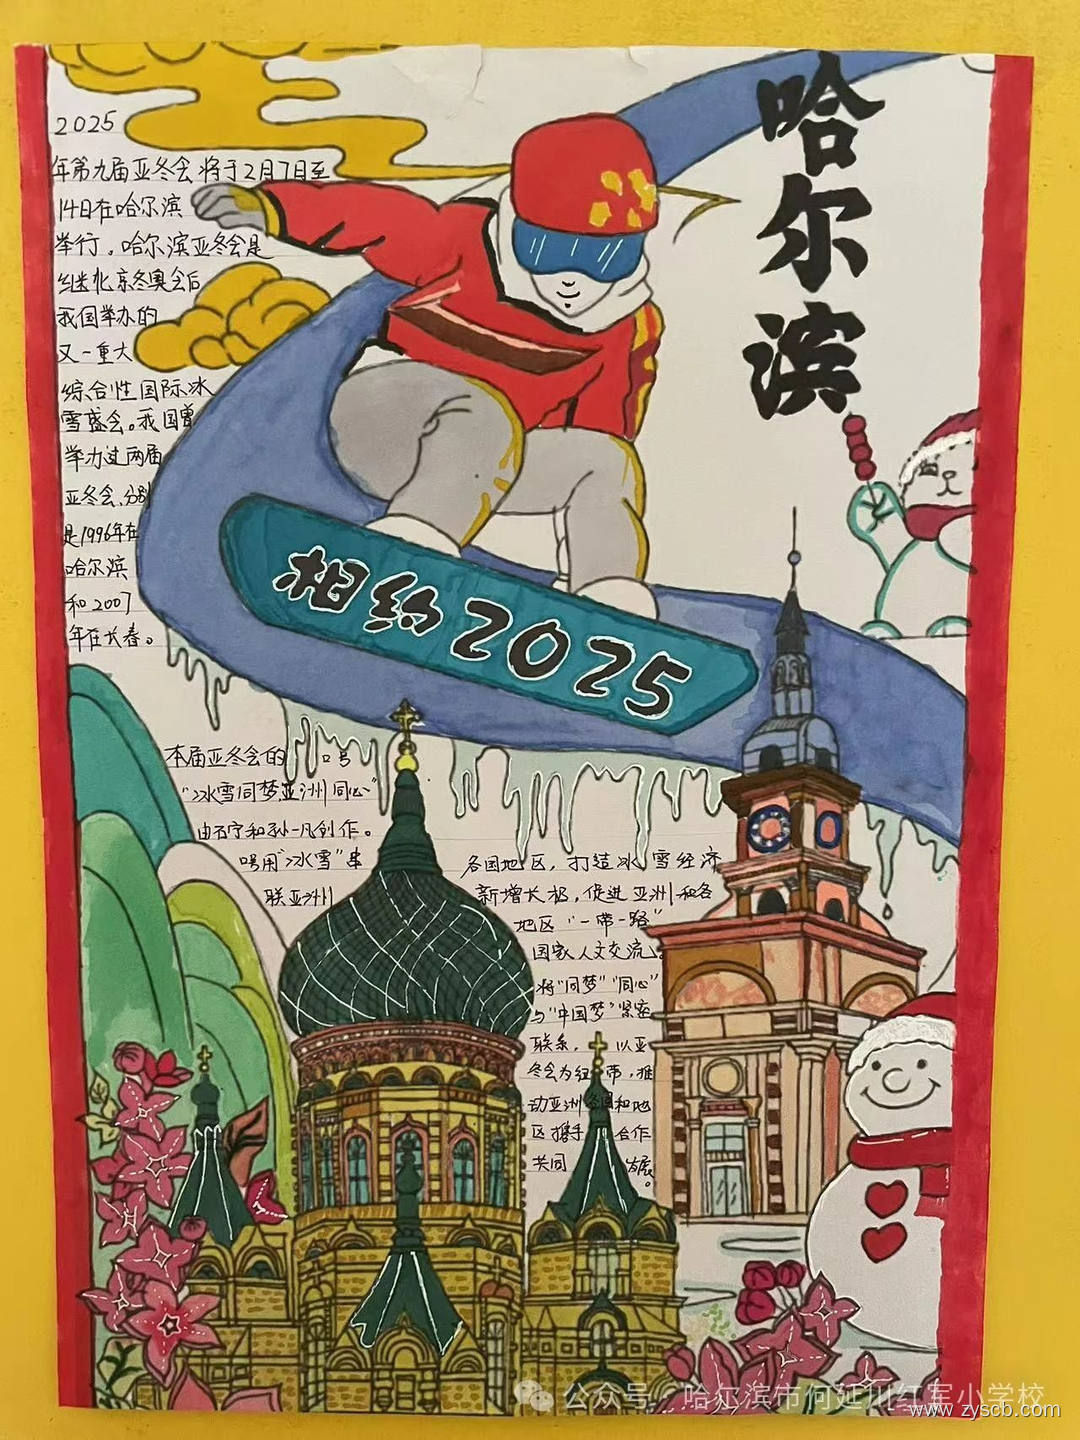 哈尔滨
2025
年第九届亚冬会将于2月7日至
14日在哈尔滨
举行。哈尔滨亚冬会是
继北京冬奥会后
我国举办的
又一重大
综合性国际冰
雪盛会。我国曾
举办过两届
亚冬会,分别
是1996年在
哈尔滨
和2007
年在长春。
相约2025
本届亚冬会的 口号
"冰雪同梦亚洲同心"
由石宁和孙一凡创作。
口号用"冰雪"串
联亚洲
各国地区,打造冰雪经济
新增长极,促进亚洲和各
地区"一带一路"
国家人文交流。
将"同梦""同心"
与"中国梦"紧密
联系,以亚
冬会为纽带,推
动亚洲各国和地
区携手合作
共同发展。
公众号·哈尔滨市何延川红军小学校
www.zyscb.com